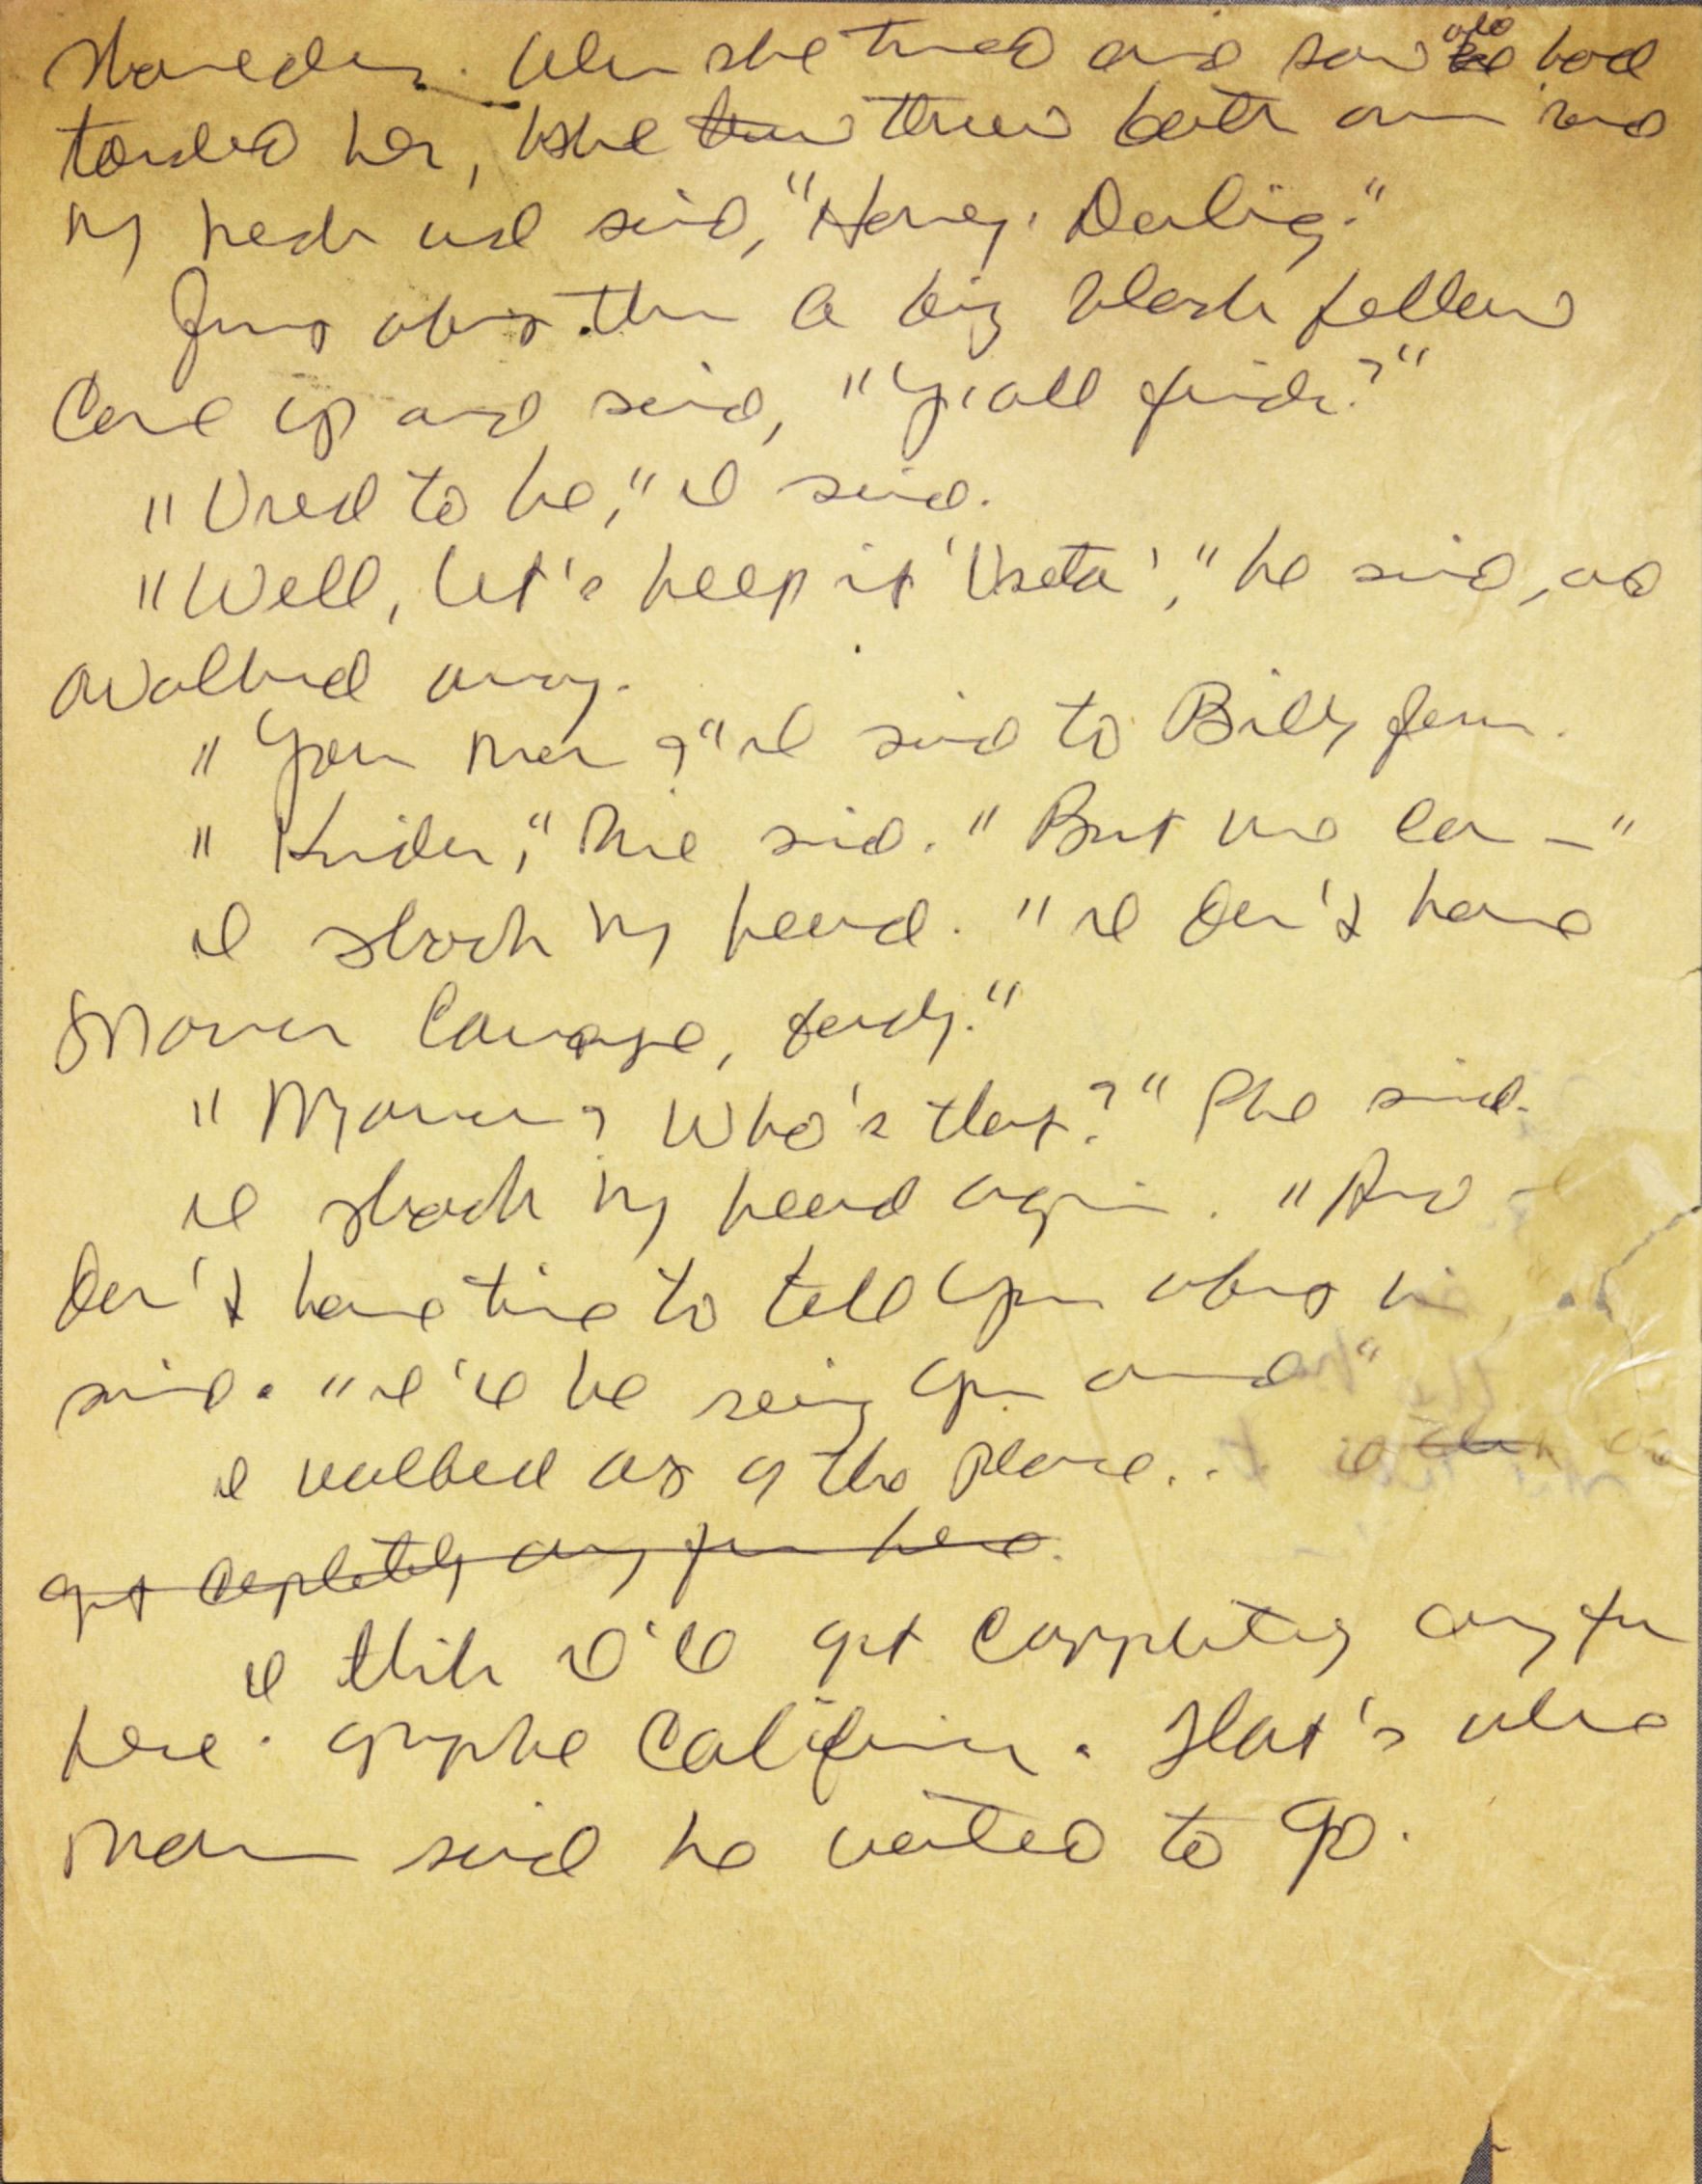 shoulder. When she turned and saw who he had
touched her, she threw threw both arms around
my neck and said, "Honey. Darling."
Just about then a big black fellow
came up and said, "Y'all friends?"
"Used to be," I said.
"Well, let's keep it 'Useta'," he said, and
walked away.
"Your man?" I said to Billy Jean.
"Kinder," she said. "But we can —"
I shook my head. "I don't have
Mama Courage, lady."
"Who's that?" She said.
I shook my head again. "And I
don't have time to tell you about him," I
said. "I'll be seeing you around"
I walked out of the place.
got completely away from here.
I think I'll get completely away from
here. Maybe California. That's where
Man said he wanted to go.